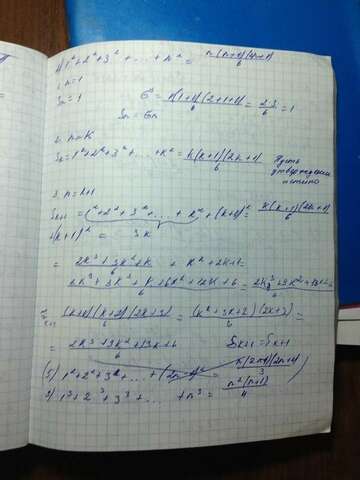 1) 1²+2²+3²+ ... + n² = n(n+1)(2n+1)/6
1. n=1
Sn = 1 σn = 1(1+1)(2+1)/6 = 2·3/6 = 1
Sn = σn
2. n=k
Sk = 1²+2²+3²+ ... + k² = k(k+1)(2k+1)/6 Пусть
утверждение
истинно
3. n=k+1
Sk+1 = 1²+2²+3²+ ... + k² + (k+1)² = k(k+1)(2k+1)/6
+(k+1)² = Sk
= 2k³+3k²+k/6 + k²+2k+1 =
2k³+3k²+k+6k²+12k+6/6 = 2k³+9k²+13k+6/6
σk+1 = (k+1)(k+2)(2k+3)/6 = (k²+3k+2)(2k+3)/6 =
= 2k³+9k²+13k+6/6 Sk+1 = σk+1
1³+2³+3³+ ... + n³ = n²(n+1)²/4